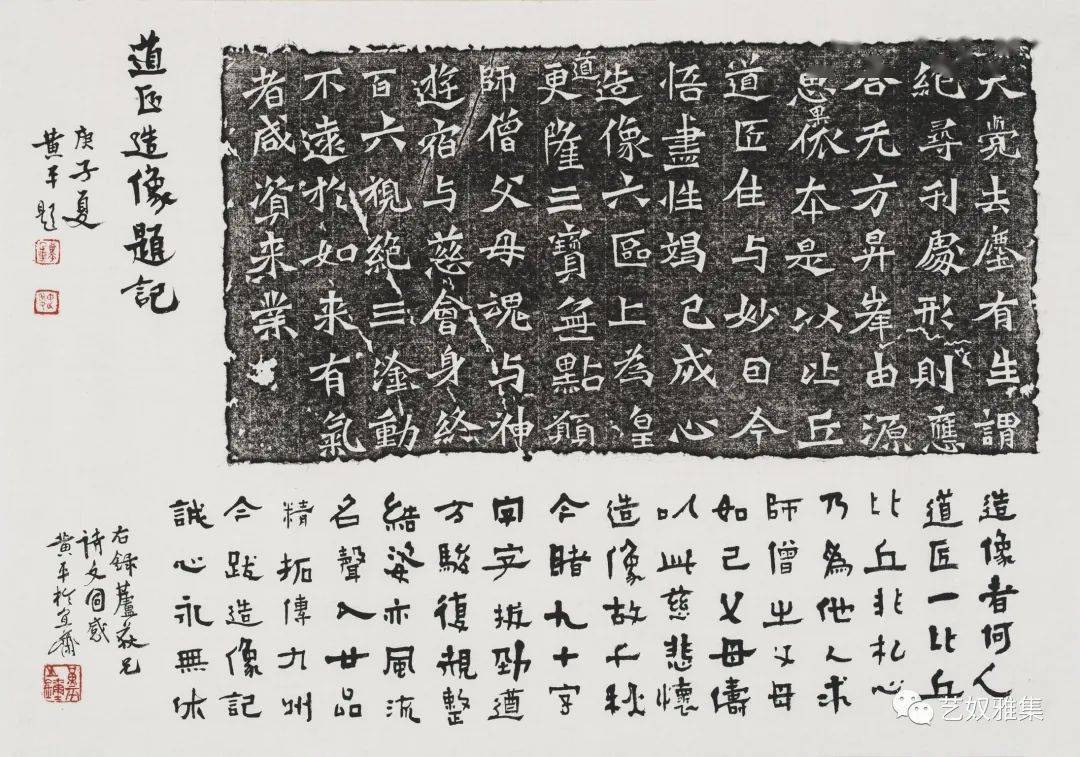 道匠造像題記
庚子夏
黄平題
大覺去塵有生謂
絕尋刊處形則應
合无方昇峯由源
思依本是以比丘
果
道匠住与妙日今
悟盡性竭己成心
造像六區上為皇
道
更隆三寶無點願
師僧父母魂与神
遊宿与慈會身終
百六視絕三塗動
不遠於如来有氣
者咸資来業
造像者何人
道匠一比丘
比丘非私心
乃為他人求
師僧之父母
如己父母儔
以此慈悲懷
造像故千秋
今睹九十字
字字拔勁遒
方駿復規整
結姿亦風流
名聲入廿品
精拓傳九州
今跋造像記
誠心永無休
右録蘆荻兄
詩文同感
黄平於宜齋
艺奴雅集